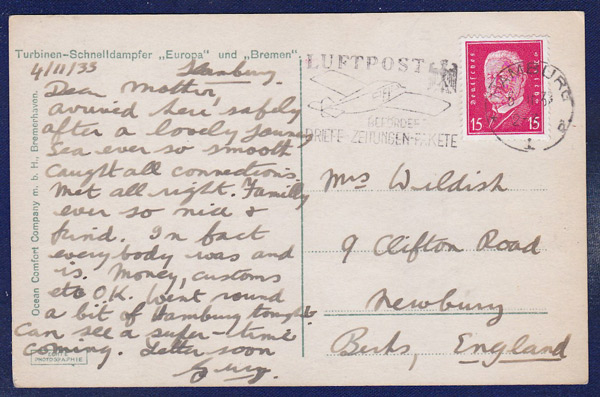 Turbinen-Schnelldampfer „Europa" und „Bremen"
4/11/33 Hamburg.
Dear Mother,
arrived here safely
after a lovely journey
Sea ever so smooth
caught all connections.
Met all right. Family
ever so nice &
kind. In fact
everybody was and
is. Money, customs
etc O.K. Went round
a bit of Hamburg tonight
can see a super-time
coming. Letter soon
Ocean Comfort Company m. b. H., Bremerhaven.
ECHTE
PHOTOGRAPHIE
LUFTPOST
BEFÖRDERT
BRIEFE-ZEITUNGEN-PAKETE
HAMBURG
1
Deutsches Reich
15 15
Mrs Wildish
9 Clifton Road
Newbury
Berks, England